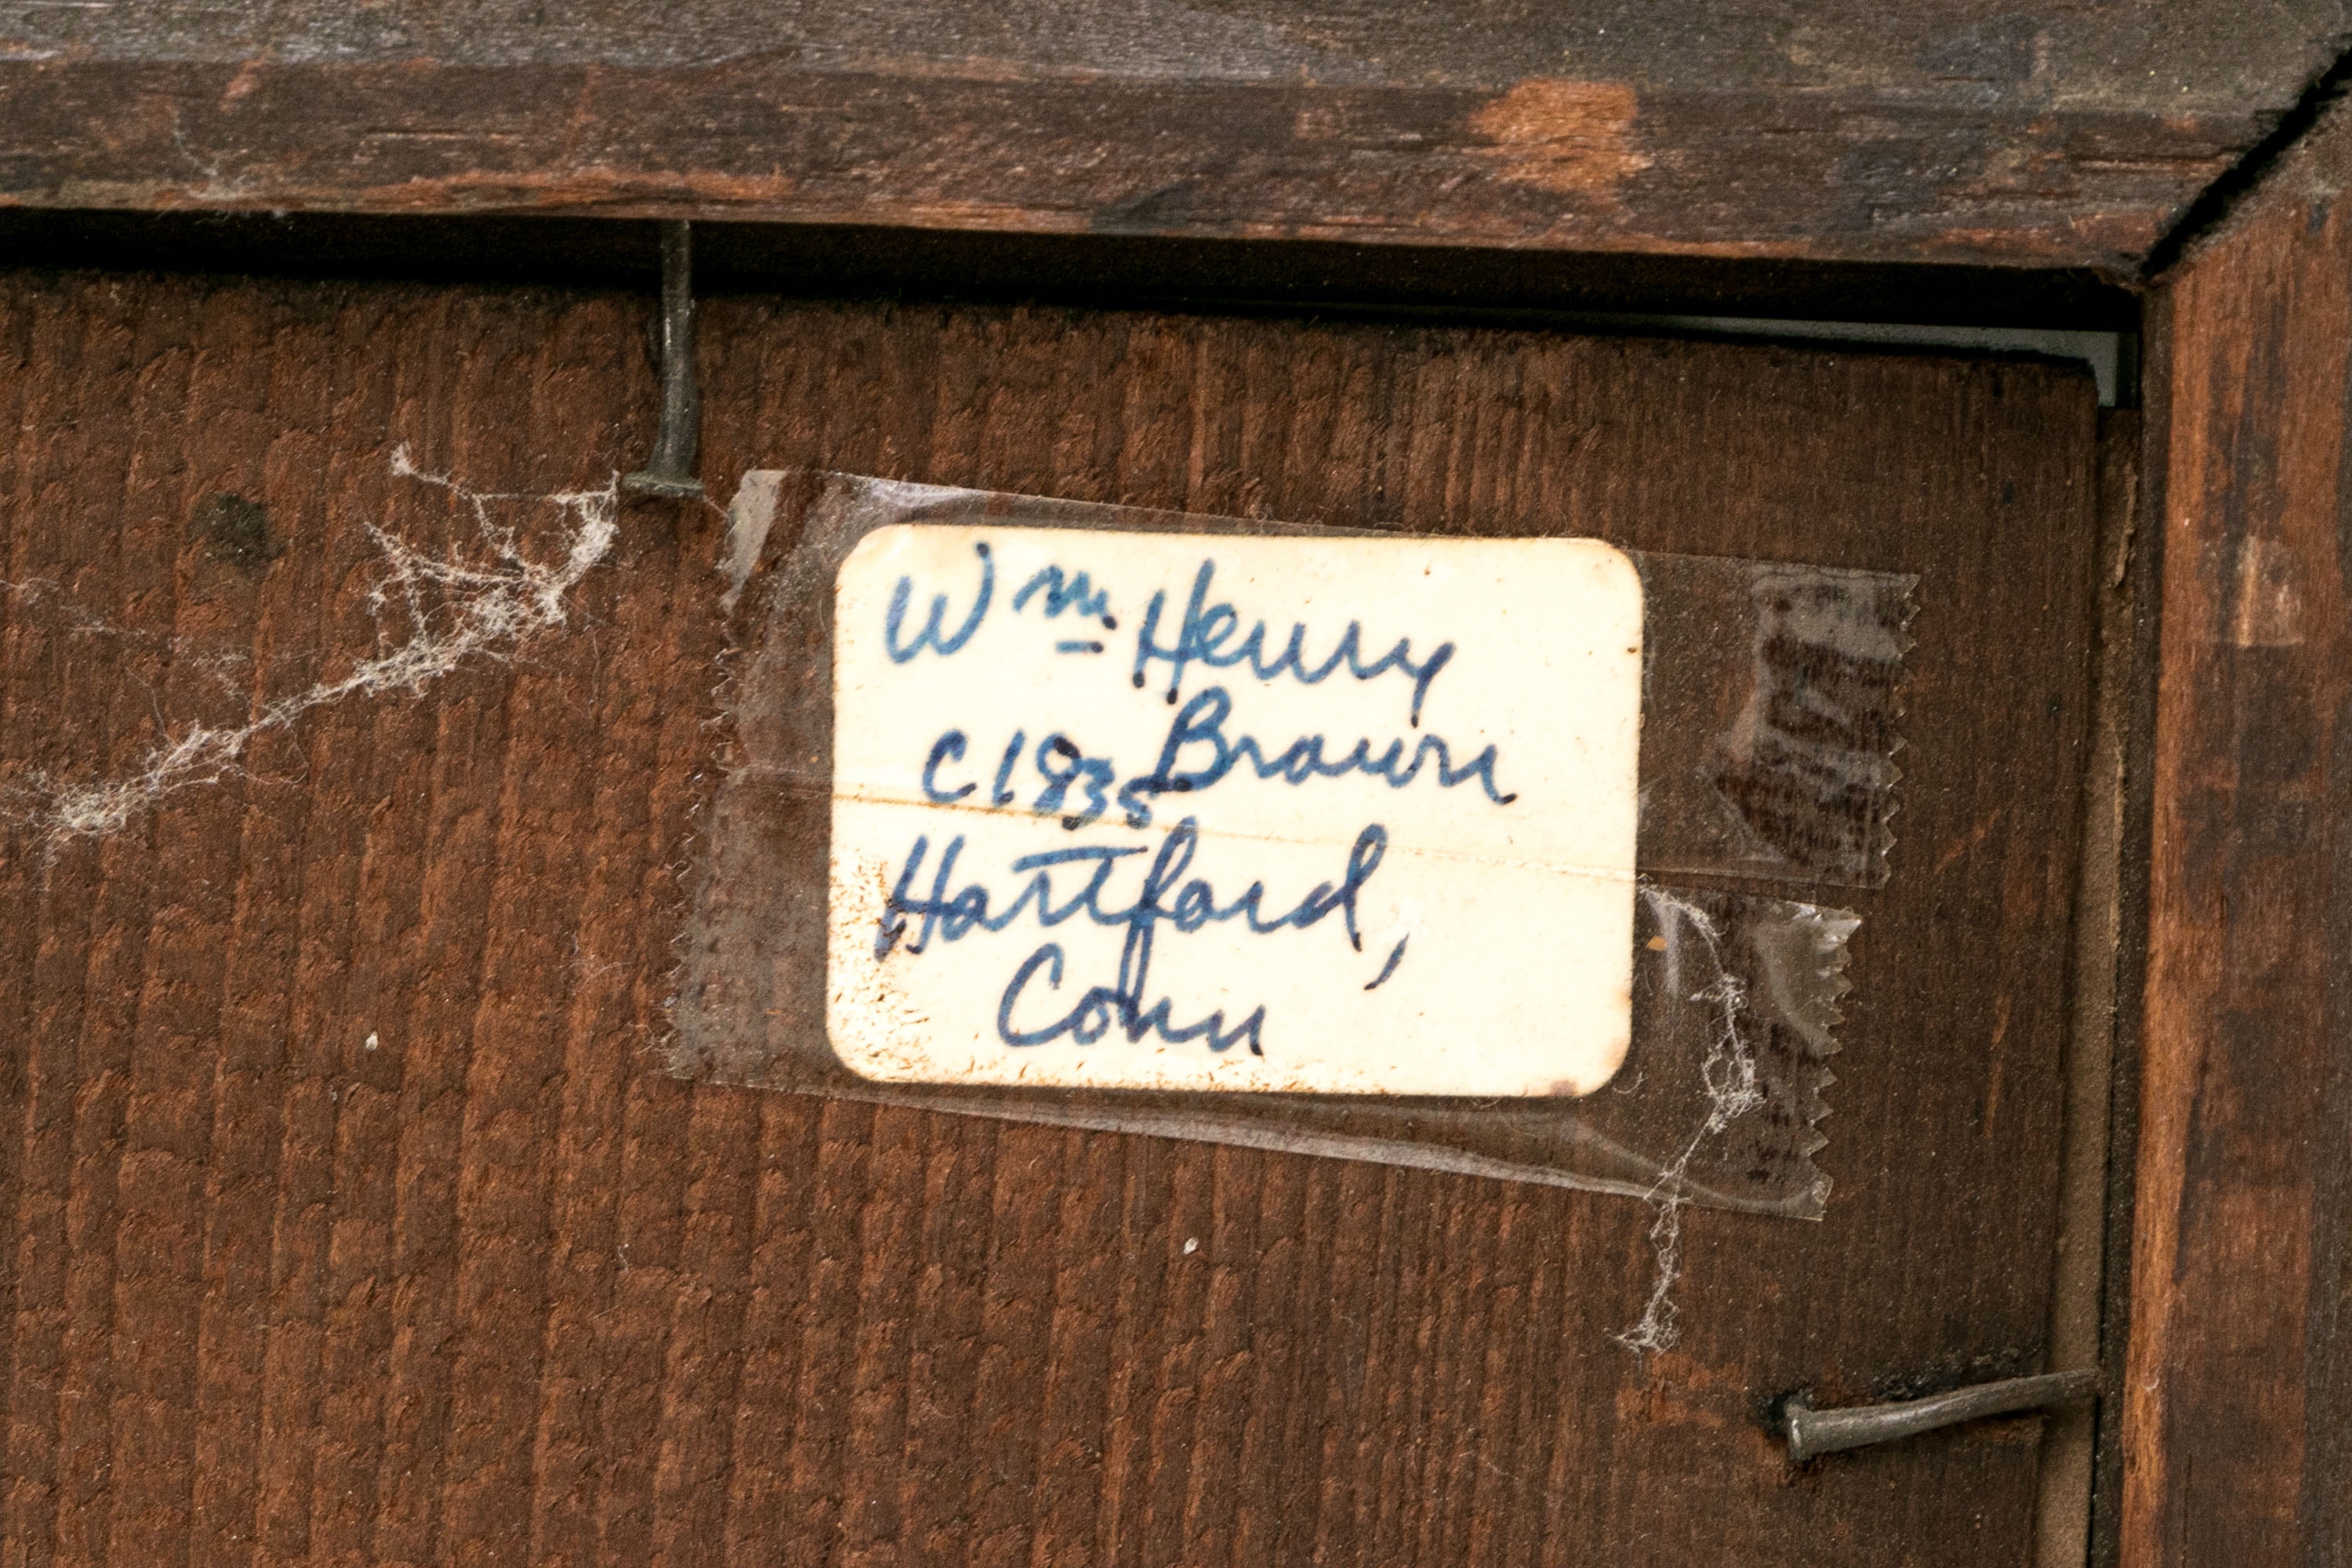 Wm. Henry
Brown
C1835
Hartford,
Conn